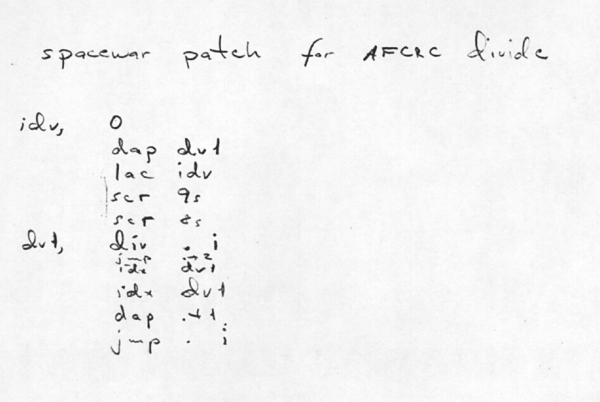 spacewar patch for AFCRC divide
idv, 0
dap dv1
lac idv
scr 9s
scr 8s
dv1, div . i
jmp .+2
idx dv1
idx dv1
dap .+1
jmp . i